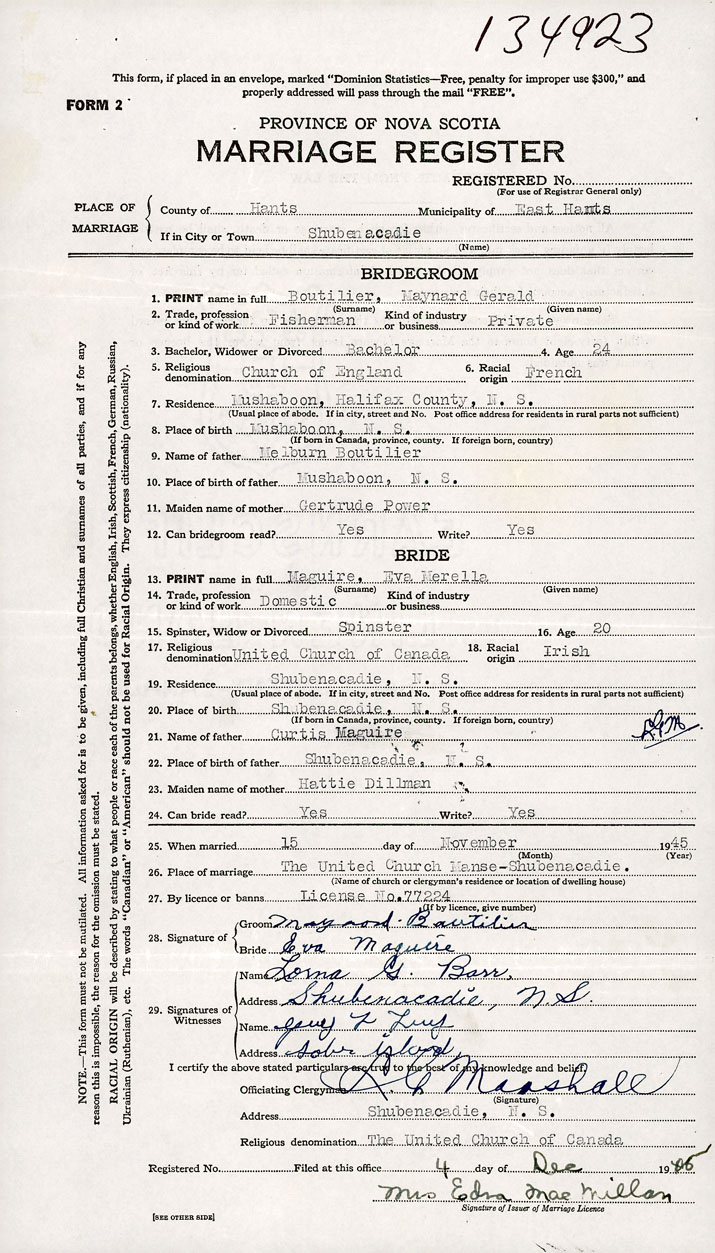 134923
This form, if placed in an envelope, marked "Dominion Statistics—Free, penalty for improper use $300," and
properly addressed will pass through the mail "FREE".
FORM 2
PROVINCE OF NOVA SCOTIA
MARRIAGE REGISTER
REGISTERED No.
(For use of Registrar General only)
PLACE OF MARRIAGE
County of Hants Municipality of East Hants
If in City or Town Shubenacadie
(Name)
BRIDEGROOM
1. PRINT name in full Boutilier, Maynard Gerald
(Surname) (Given name)
2. Trade, profession or kind of work Fisherman Kind of industry or business Private
3. Bachelor, Widower or Divorced Bachelor 4. Age 24
5. Religious denomination Church of England 6. Racial origin French
7. Residence Mushaboon, Halifax County, N. S.
(Usual place of abode. If in city, street and No. Post office address for residents in rural parts not sufficient)
8. Place of birth Mushaboon, N. S.
(If born in Canada, province, county. If foreign born, country)
9. Name of father Melburn Boutilier
10. Place of birth of father Mushaboon, N. S.
11. Maiden name of mother Gertrude Power
12. Can bridegroom read? Yes Write? Yes
BRIDE
13. PRINT name in full Maguire, Eva Merella
(Surname) (Given name)
14. Trade, profession or kind of work Domestic Kind of industry or business
15. Spinster, Widow or Divorced Spinster 16. Age 20
17. Religious denomination United Church of Canada 18. Racial origin Irish
19. Residence Shubenacadie, N. S.
(Usual place of abode. If in city, street and No. Post office address for residents in rural parts not sufficient)
20. Place of birth Shubenacadie, N. S.
(If born in Canada, province, county. If foreign born, country)
21. Name of father Curtis Maguire
22. Place of birth of father Shubenacadie, N. S.
23. Maiden name of mother Hattie Dillman
24. Can bride read? Yes Write? Yes
25. When married 15 day of November 1945
(Month) (Year)
26. Place of marriage The United Church Manse-Shubenacadie.
(Name of church or clergyman's residence or location of dwelling house)
27. By licence or banns License No.77224
(If by licence, give number)
28. Signature of
Groom Maynard Boutilier
Bride Eva Maguire
29. Signatures of Witnesses
Name Lorna G. Barr,
Address Shubenacadie, N.S.
Name
Address Sober Island,
I certify the above stated particulars are true to the best of my knowledge and belief.
Officiating Clergyman Marshall
(Signature)
Address Shubenacadie, N. S.
Religious denomination The United Church of Canada
Registered No. Filed at this office 4 day of Dec 1945
Mrs Edna MacMillan
Signature of Issuer of Marriage Licence
[SEE OTHER SIDE]
NOTE.—This form must not be mutilated. All information asked for is to be given, including full Christian and surnames of all parties, and if for any
reason this is impossible, the reason for the omission must be stated.
RACIAL ORIGIN will be described by stating to what people or race each of the parents belongs, whether English, Irish, Scottish, French, German, Russian,
Ukrainian (Ruthenian), etc. The words "Canadian" or "American" should not be used for Racial Origin. They express citizenship (nationality).